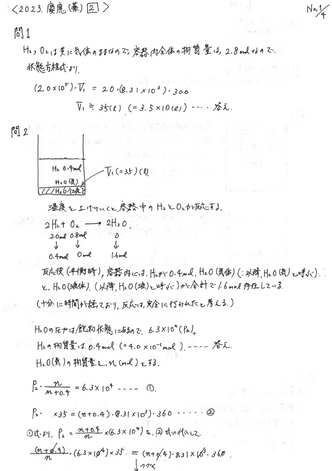 <2023. 慶應(薬) 2>
No.1/4
問1
H₂, O₂は共に気体のままなので、容器内全体の物質量は、2.8molなので
状態方程式より、
(2.0×10⁵)・V₁ = 2.8・(8.31×10³)・300
V₁ ≒ 35(L) (=3.5×10(L)) ‥‥ 答え
問2
H₂ 0.4mol
H₂O(気)
V₁(=35)(L)
温度を上げていくと、容器中のH₂とO₂が反応する。
2H₂ + O₂ → 2H₂O
2.0mol 0.8mol 0
↓ ↓ ↓
0.4mol 0mol 1.6mol
反応後(平衡時)、容器内には、H₂が0.4mol, H₂O(気体)(以降, H₂O(気)と呼ぶ)
と、H₂O(液体)(以降, H₂O(液)と呼ぶ)が合計で1.6mol存在している。
(十分に時間が経っており、反応は完全に行われたと考える)
H₂Oの圧力は飽和状態にあるので、6.3×10⁴(Pa)。
H₂の物質量は0.4mol (=4.0×10⁻¹mol) ‥‥ 答え
H₂O(気)の物質量を、n(mol)とする。
P₂・n/(n+0.4) = 6.3×10⁴ ‥‥ ①
P₂・×35 = (n+0.4)・(8.31×10³)・360 ‥‥ ②
①より, P₂ = (n+0.4)/n ×(6.3×10⁴)を、②に代入して
(n+0.4)/n・(6.3×10⁴)×35 = (n+0.4)・8.31×10³・360
↓つづく